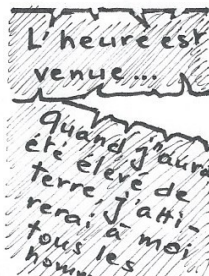 L'heure est
venue...
Quand j'aurai
été élevé de
terre, j'atti-
rerai à moi
tous les
hommes